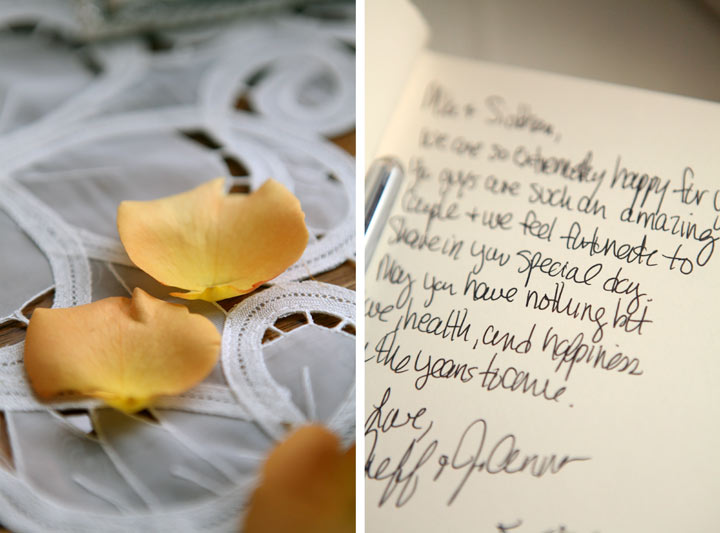 We are so extremely happy for
You guys are such an amazing
Couple + we feel fortunate to
Share in your special day.
May you have nothing but
health, and happiness
the years to come.
Love,
Jeff &